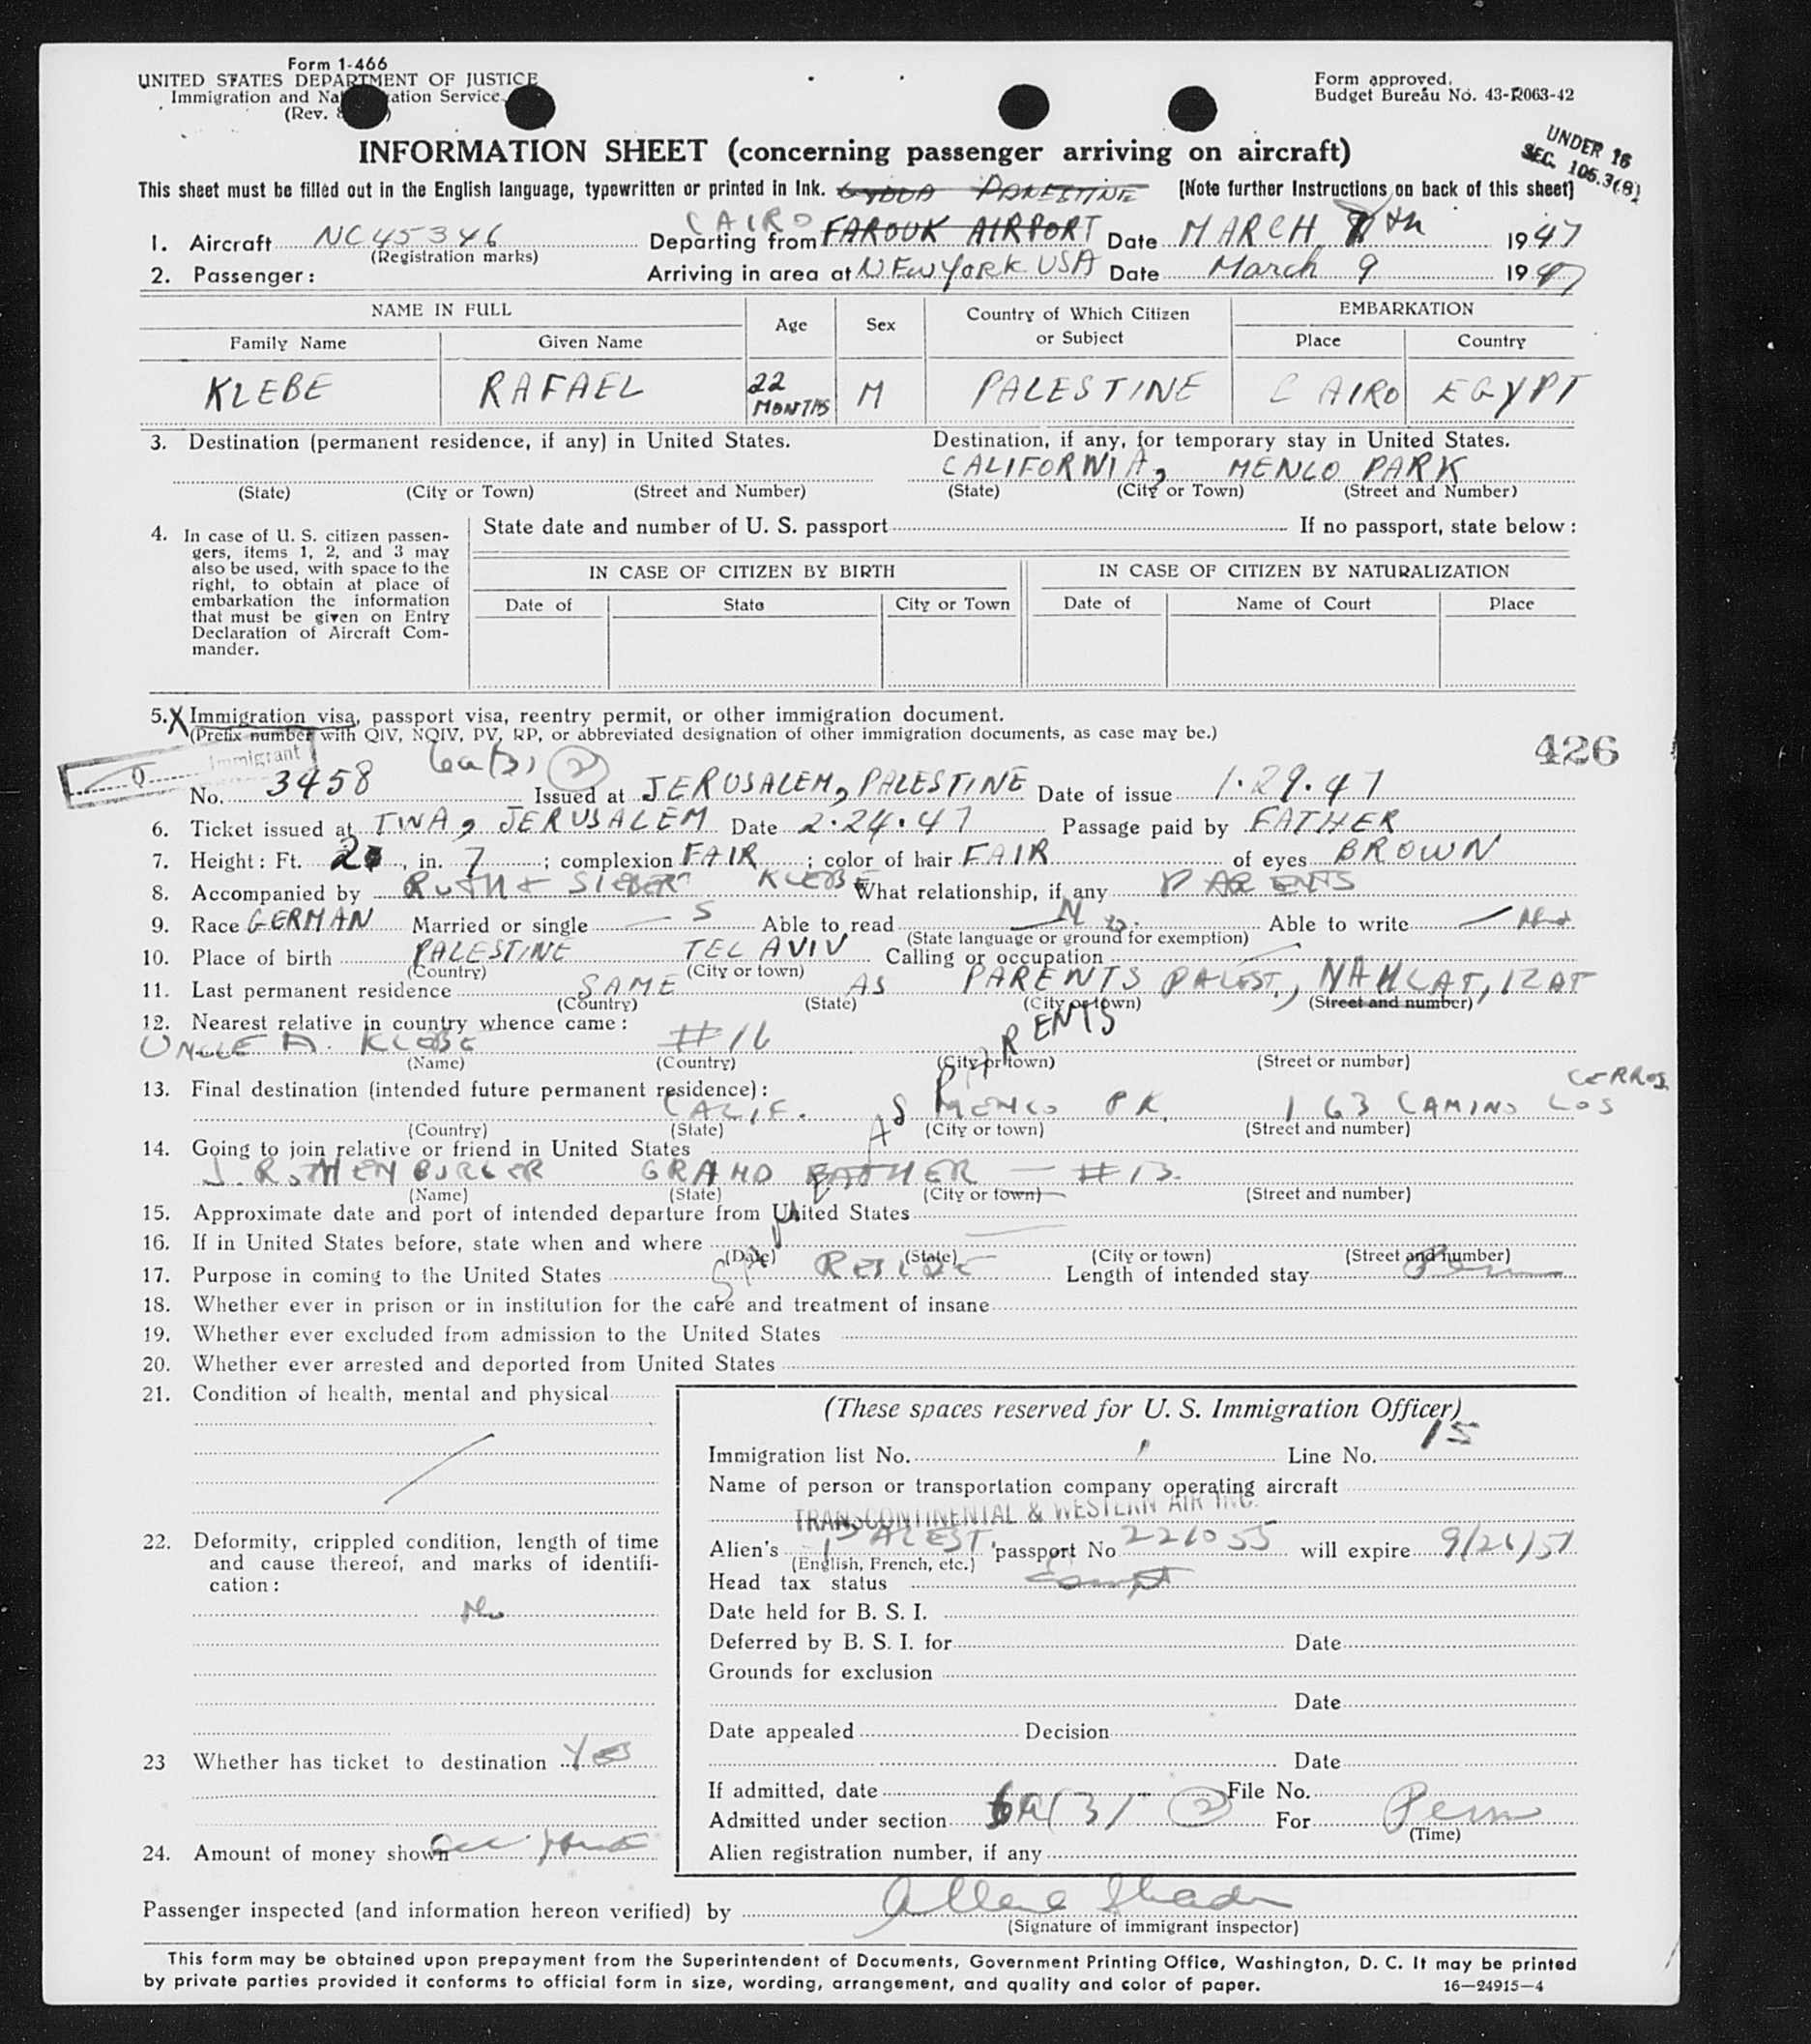 Form 1-466
UNITED STATES DEPARTMENT OF JUSTICE
Immigration and Na ation Service
(Rev.
Form approved.
Budget Bureau No. 43-R063-42
UNDER 16
SEC. 106.3(8)
INFORMATION SHEET (concerning passenger arriving on aircraft)
This sheet must be filled out in the English language, typewritten or printed in Ink. LYDDA PALESTINE [Note further Instructions on back of this sheet]
CAIRO
1. Aircraft NC45346 Departing from FAROUK AIRPORT Date MARCH 8th 1947
(Registration marks)
2. Passenger: Arriving in area at NEW YORK USA Date March 9 1947
NAME IN FULL Age Sex Country of Which Citizen or Subject EMBARKATION
Family Name Given Name Place Country
KLEBE RAFAEL 22 MONTHS M PALESTINE CAIRO EGYPT
3. Destination (permanent residence, if any) in United States. Destination, if any, for temporary stay in United States.
CALIFORNIA, MENLO PARK
(State) (City or Town) (Street and Number) (State) (City or Town) (Street and Number)
4. In case of U. S. citizen passen-
gers, items 1, 2, and 3 may
also be used, with space to the
right, to obtain at place of
embarkation the information
that must be given on Entry
Declaration of Aircraft Com-
mander.
State date and number of U. S. passport If no passport, state below:
IN CASE OF CITIZEN BY BIRTH IN CASE OF CITIZEN BY NATURALIZATION
Date of State City or Town Date of Name of Court Place
5. X Immigration visa, passport visa, reentry permit, or other immigration document.
(Prefix number with QIV, NQIV, PV, RP, or abbreviated designation of other immigration documents, as case may be.)
426
Q Immigrant 6a(3) 2
No. 3458 Issued at JERUSALEM, PALESTINE Date of issue 1.29.47
6. Ticket issued at TWA, JERUSALEM Date 2.24.47 Passage paid by FATHER
7. Height: Ft. 2, in. 7; complexion FAIR; color of hair FAIR of eyes BROWN
8. Accompanied by RUTH + KLEBE What relationship, if any PARENTS
9. Race GERMAN Married or single S Able to read No. Able to write No
(State language or ground for exemption)
10. Place of birth PALESTINE TEL AVIV Calling or occupation
(Country) (City or town)
11. Last permanent residence SAME AS PARENTS PALEST., NAHLAT, IZAT
(Country) (State) (City or town) (Street and number)
12. Nearest relative in country whence came:
UNCLE A. KLEBE #16
(Name) (Country) (City or town) (Street or number)
13. Final destination (intended future permanent residence):
CERROS
CALIF. MENLO PK. 163 CAMINO LOS
(Country) (State) (City or town) (Street and number)
14. Going to join relative or friend in United States
J. ROTHENBURGER GRAND FATHER — #13.
(Name) (State) (City or town) (Street and number)
SAME AS PARENTS
15. Approximate date and port of intended departure from United States
16. If in United States before, state when and where
(Date) (State) (City or town) (Street and number)
17. Purpose in coming to the United States RESIDE Length of intended stay Perm
18. Whether ever in prison or in institution for the care and treatment of insane
19. Whether ever excluded from admission to the United States
20. Whether ever arrested and deported from United States
21. Condition of health, mental and physical
22. Deformity, crippled condition, length of time
and cause thereof, and marks of identifi-
cation:
No
23 Whether has ticket to destination Yes
24. Amount of money shown
(These spaces reserved for U. S. Immigration Officer)
Immigration list No. 1 Line No. 15
Name of person or transportation company operating aircraft
TRANSCONTINENTAL & WESTERN AIR INC.
Alien's PALEST. passport No 221055 will expire 9/26/51
(English, French, etc.)
Head tax status Exempt
Date held for B. S. I.
Deferred by B. S. I. for Date
Grounds for exclusion
Date
Date appealed Decision
Date
If admitted, date File No.
Admitted under section 6A(3) 2 For Perm
(Time)
Alien registration number, if any
Passenger inspected (and information hereon verified) by
(Signature of immigrant inspector)
This form may be obtained upon prepayment from the Superintendent of Documents, Government Printing Office, Washington, D. C. It may be printed
by private parties provided it conforms to official form in size, wording, arrangement, and quality and color of paper. 16—24915-4